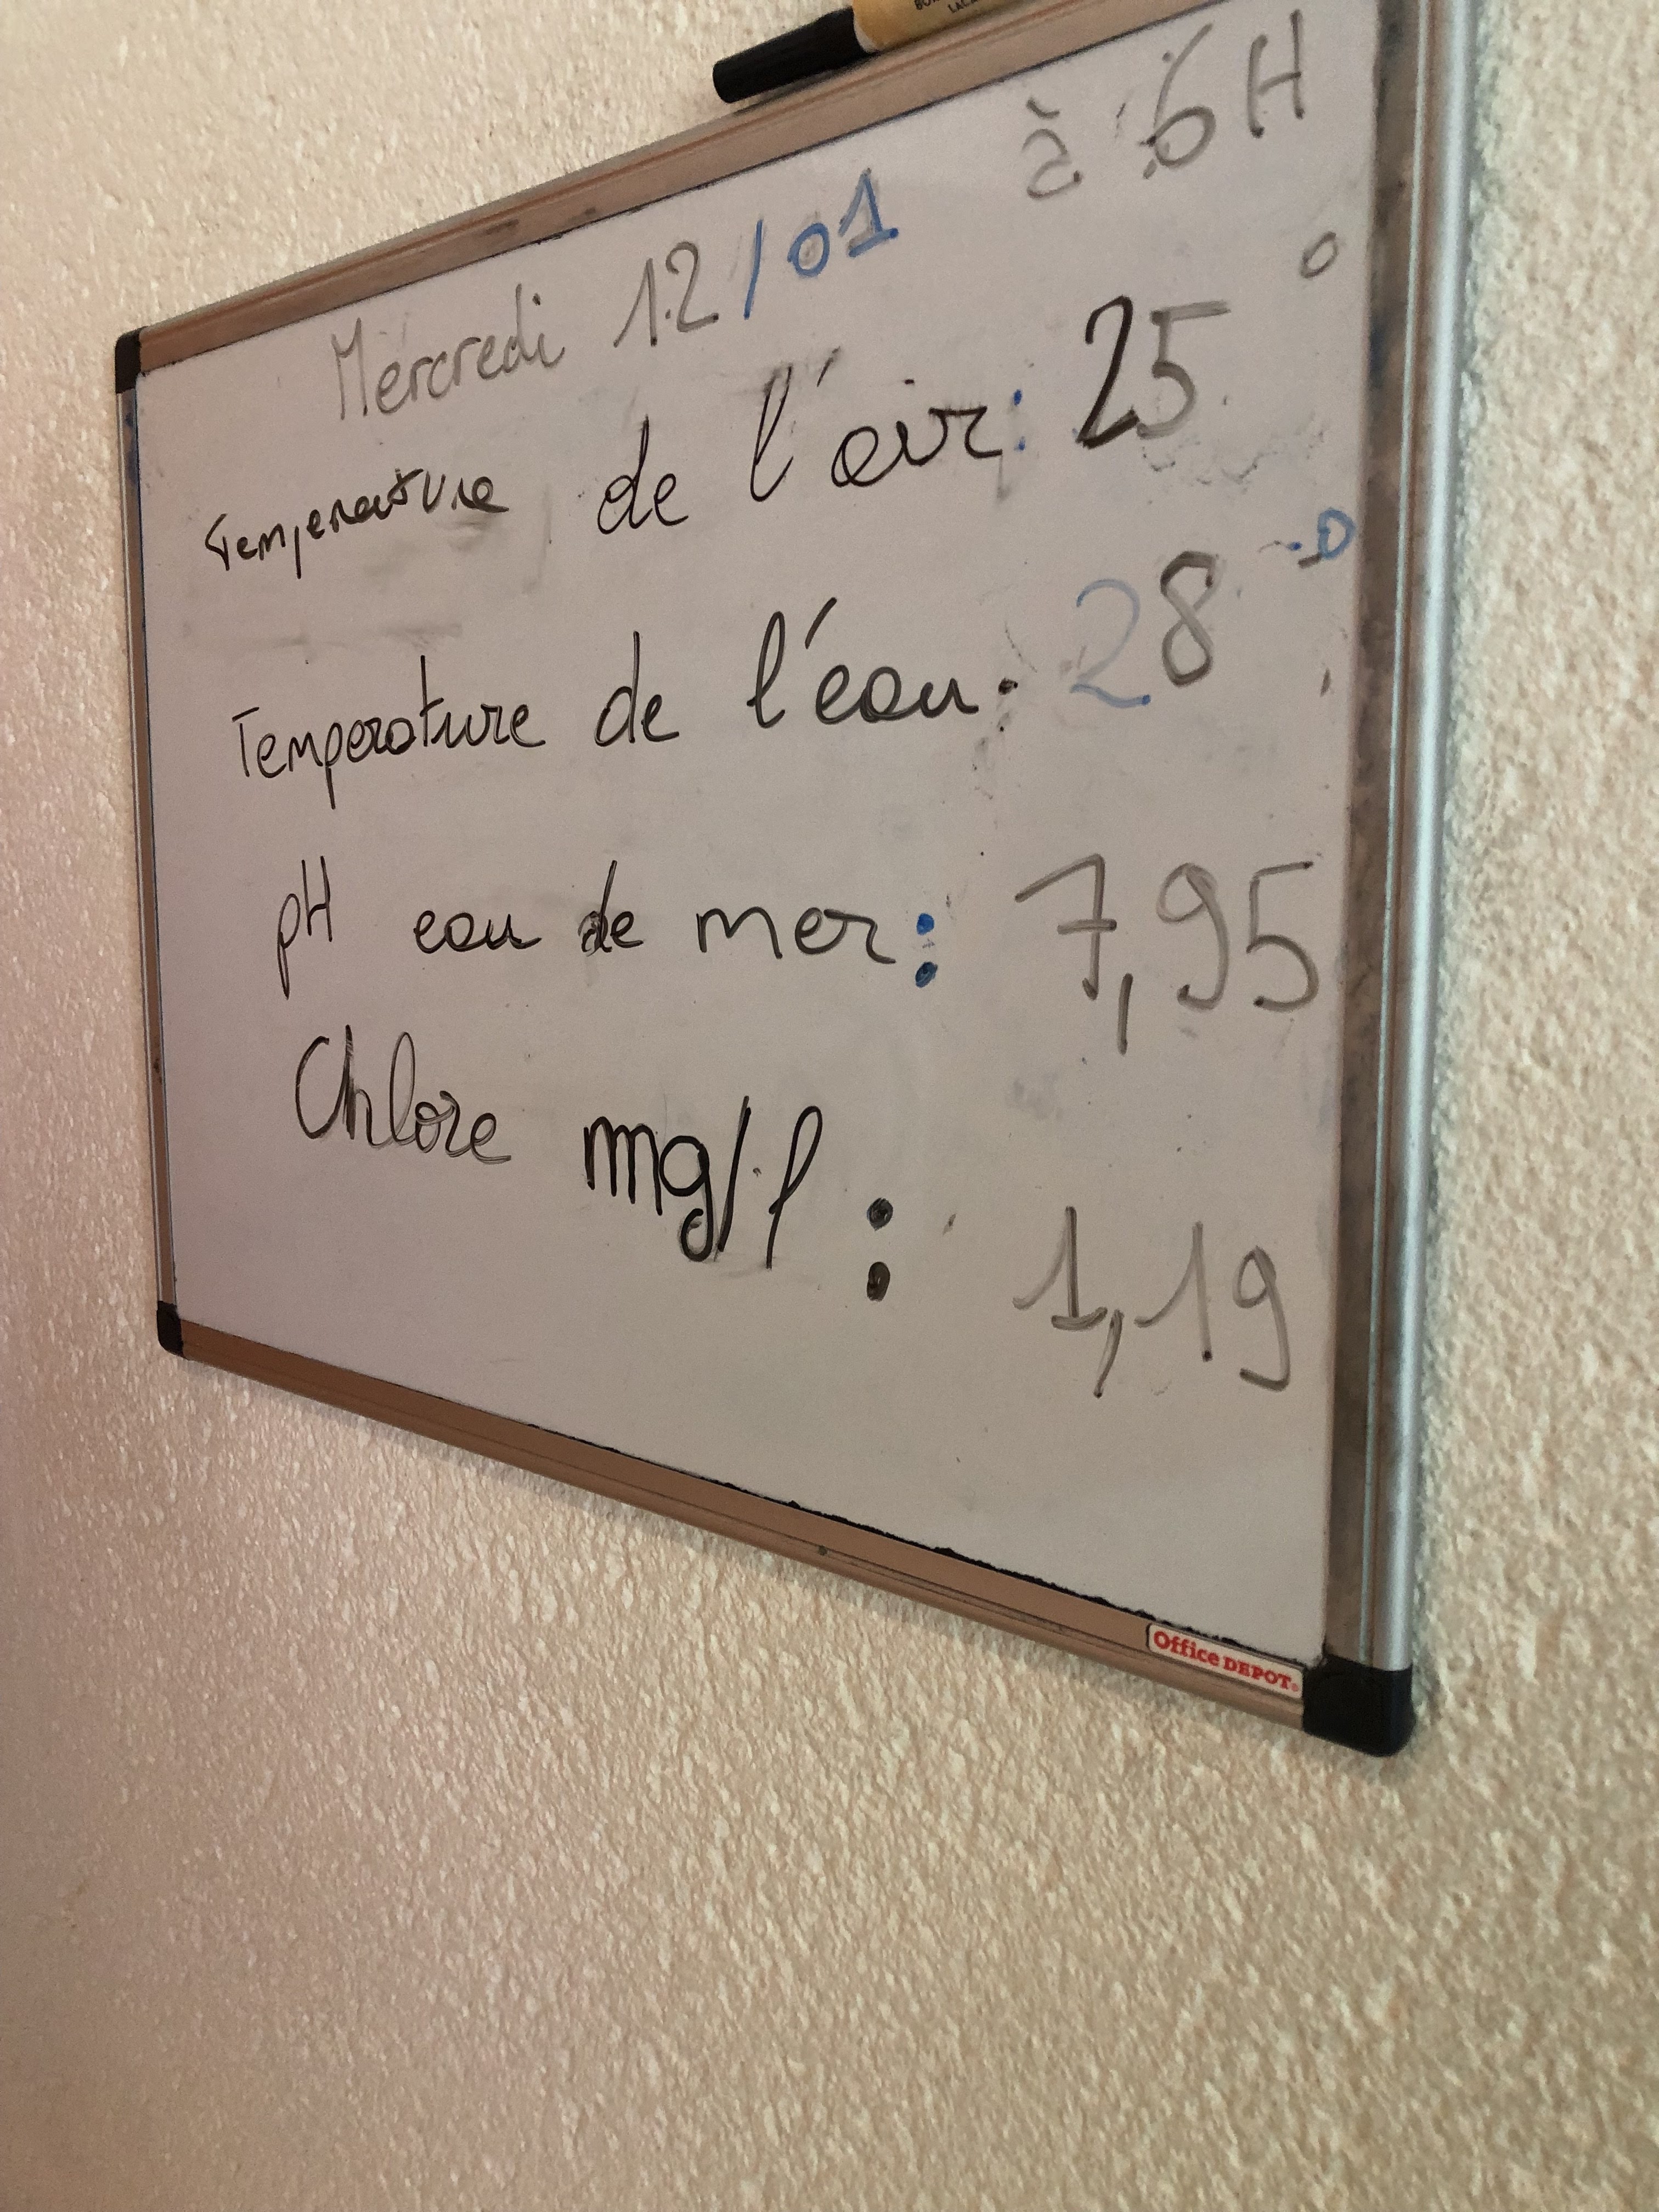 Mercredi 12/01 à 6H
Temperature de l'air: 25°
Temperature de l'eau: 28°
pH eau de mer: 7,95
Chlore mg/l : 1,19
Office DEPOT